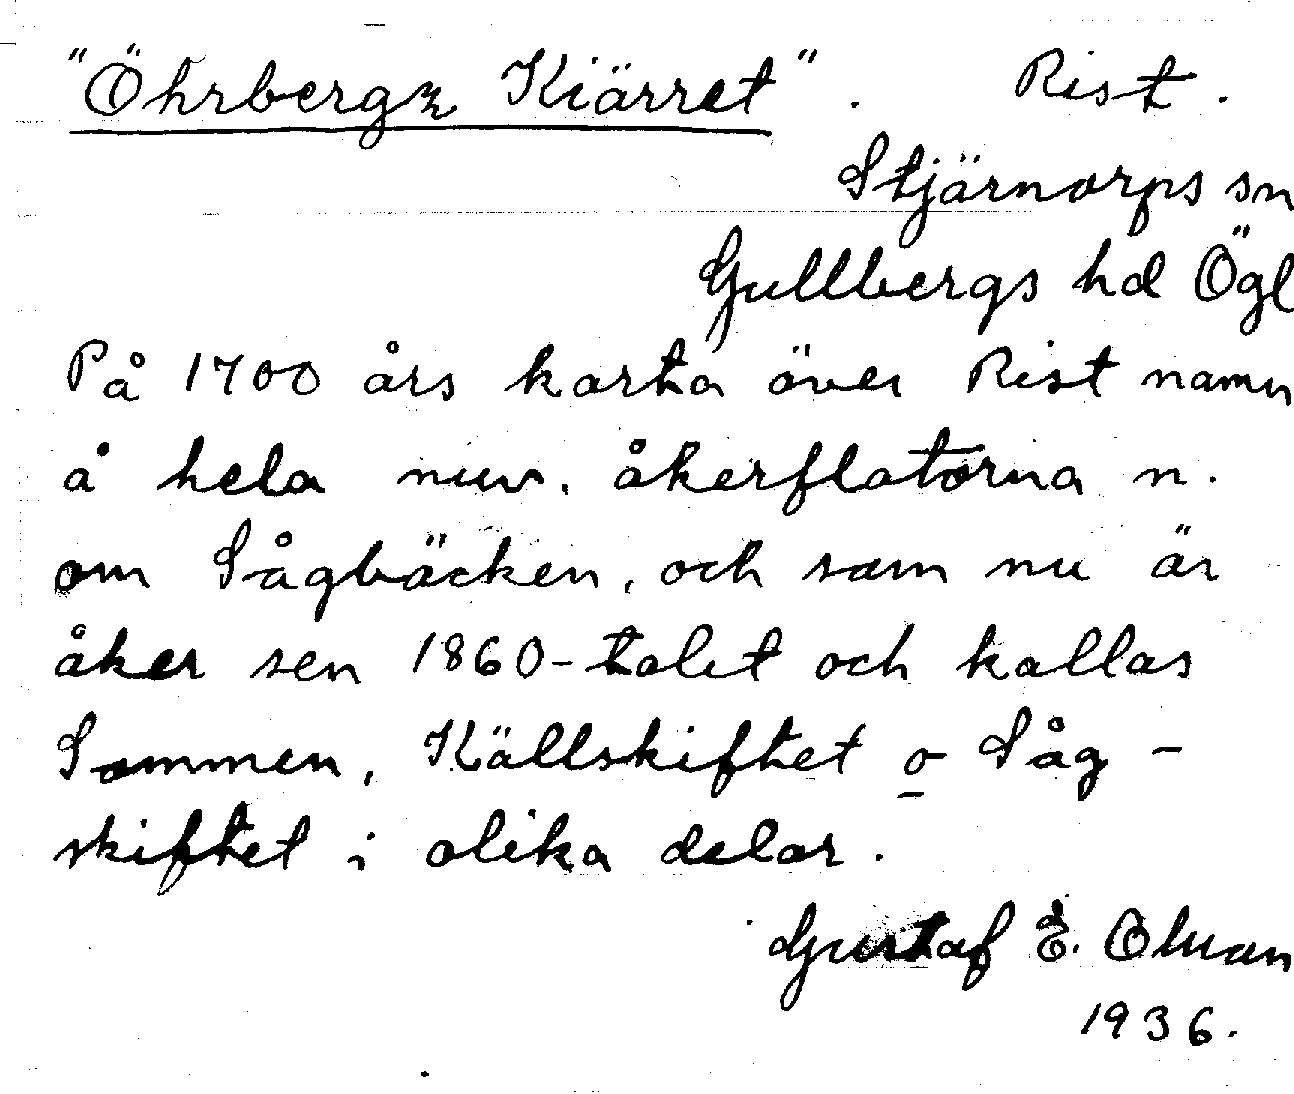 "Öhrbergz Kiärret". Rist.
Stjärnorps sn
Gullbergs hd Ögl
På 1700 års karta över Rist namn
å hela nuv. åkerflatorna n.
om Sågbäcken, och som nu är
åker sen 1860-talet och kallas
Sommen, Källskiftet o Såg-
skiftet i olika delar.
Gustaf E.
1936.